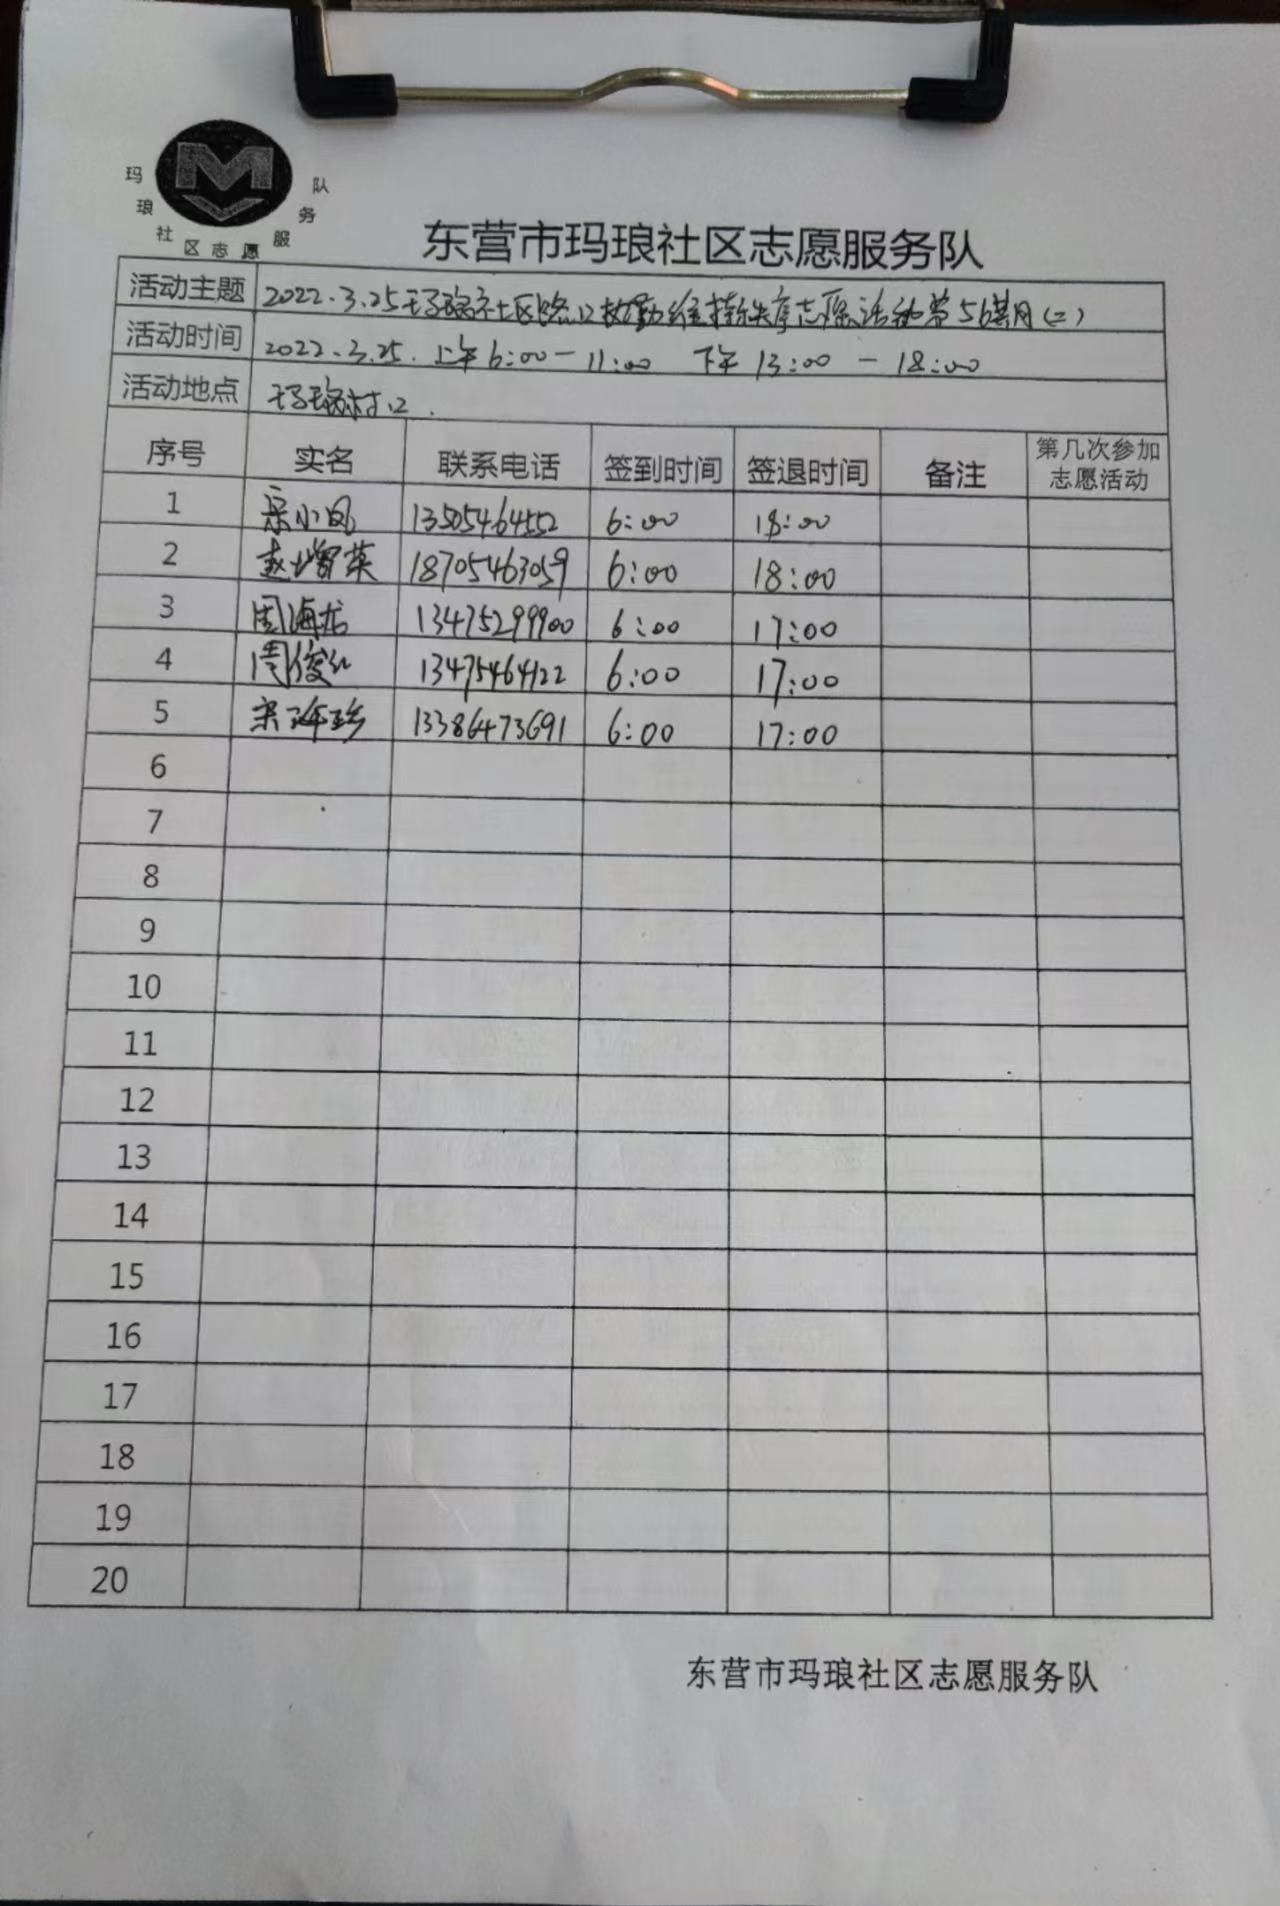 玛琅社区志愿服务队
东营市玛琅社区志愿服务队
活动主题 2022.3.25玛琅社区路口执勤维持秩序志愿活动第56期(二)
活动时间 2022.3.25. 上午6:00-11:00 下午13:00-18:00
活动地点 玛琅村口.
序号 实名 联系电话 签到时间 签退时间 备注 第几次参加志愿活动
1 宋小凤 13505464552 6:00 18:00
2 赵增英 18705463059 6:00 18:00
3 周海龙 13475299900 6:00 17:00
4 周俊红 13475464122 6:00 17:00
5 宋 珍 13386473691 6:00 17:00
6
7
8
9
10
11
12
13
14
15
16
17
18
19
20
东营市玛琅社区志愿服务队